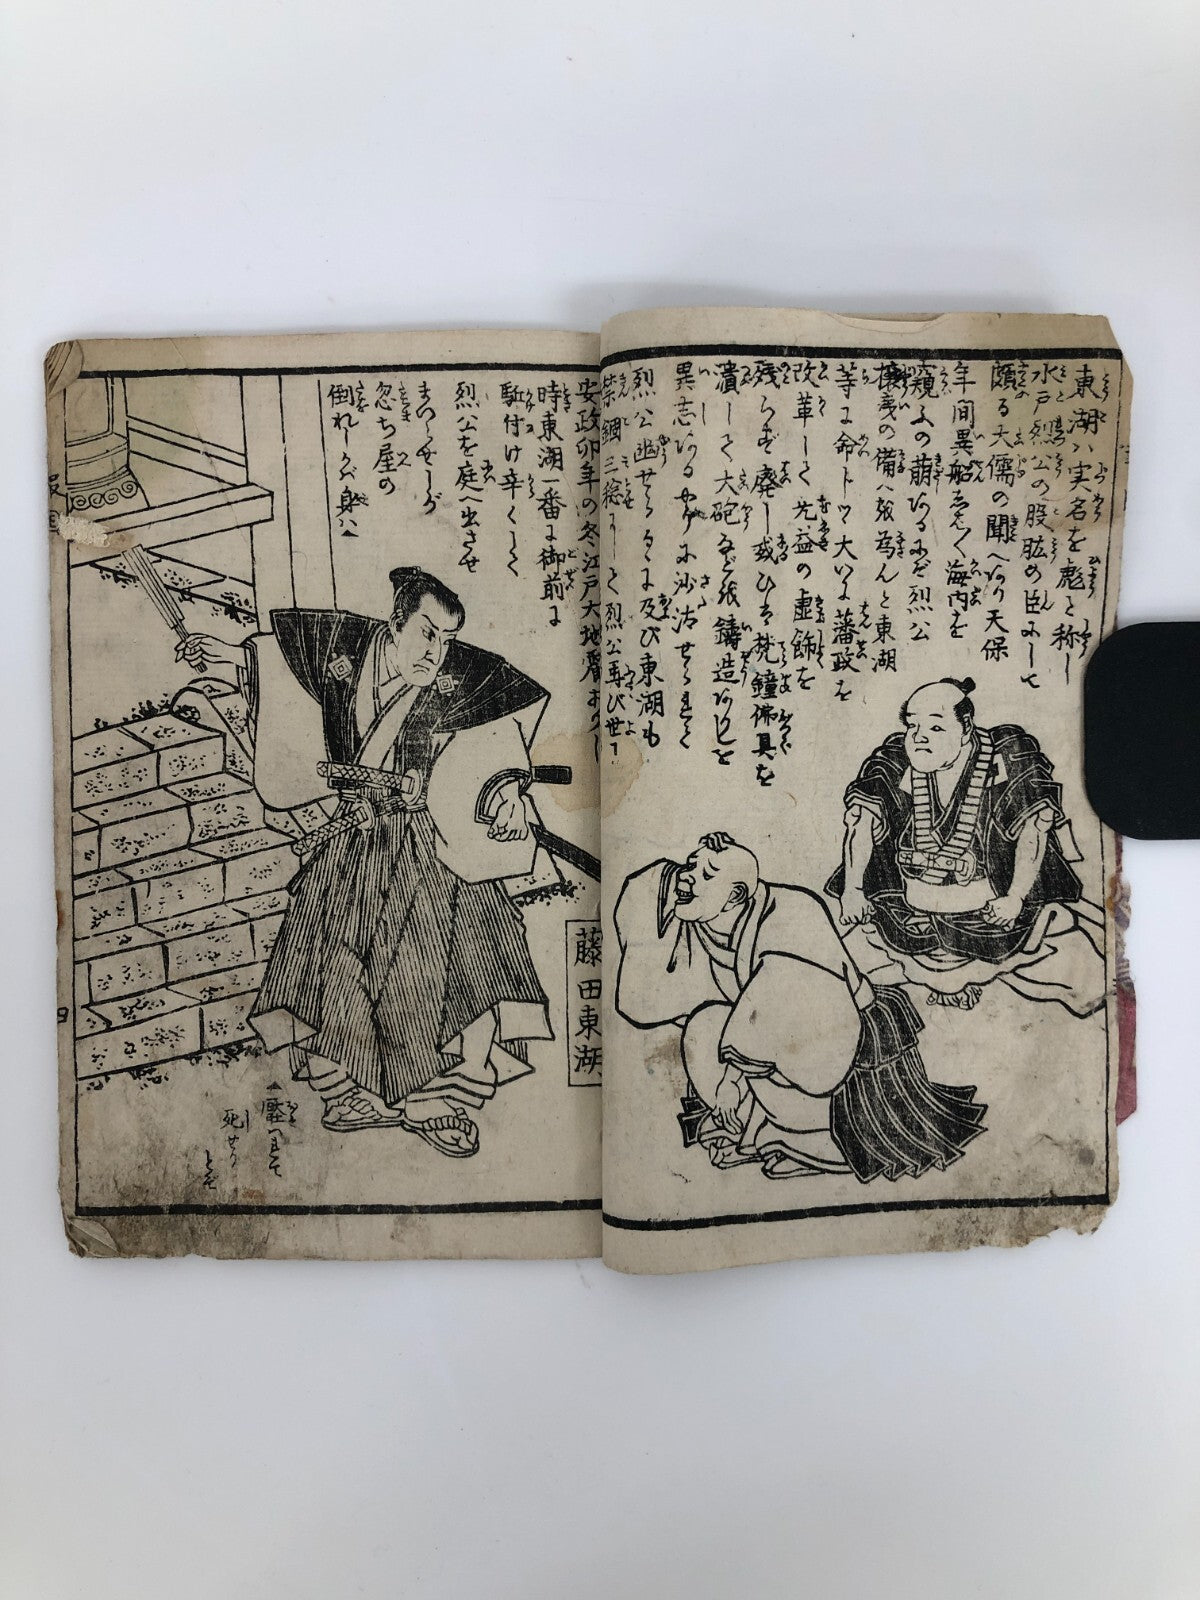 東湖ハ実名を彪と称し
水戸烈公の股肱の臣にして
頗る大儒の聞へあり天保
年間異船あらく海内を
窺ふの萠あるにぞ烈公
攘夷の備ハを為んと東湖
等に命ト大いに藩政を
改革して无益の虚飾を
残らず廃し或ひは梵鐘佛具を
潰して大砲などを鋳造ありしを
異志あるやに沙汰せられて
烈公幽せらるに及び東湖も
禁錮三稔にして烈公再び世に
安政卯年の冬江戸大地震ありし
時東湖一番に御前に
駈付け辛くして
烈公を庭へ出させ
まつらせしが
忽ち屋の
倒れしかバ身ハ
壓れて
死せり
とぞ
藤田東湖
四